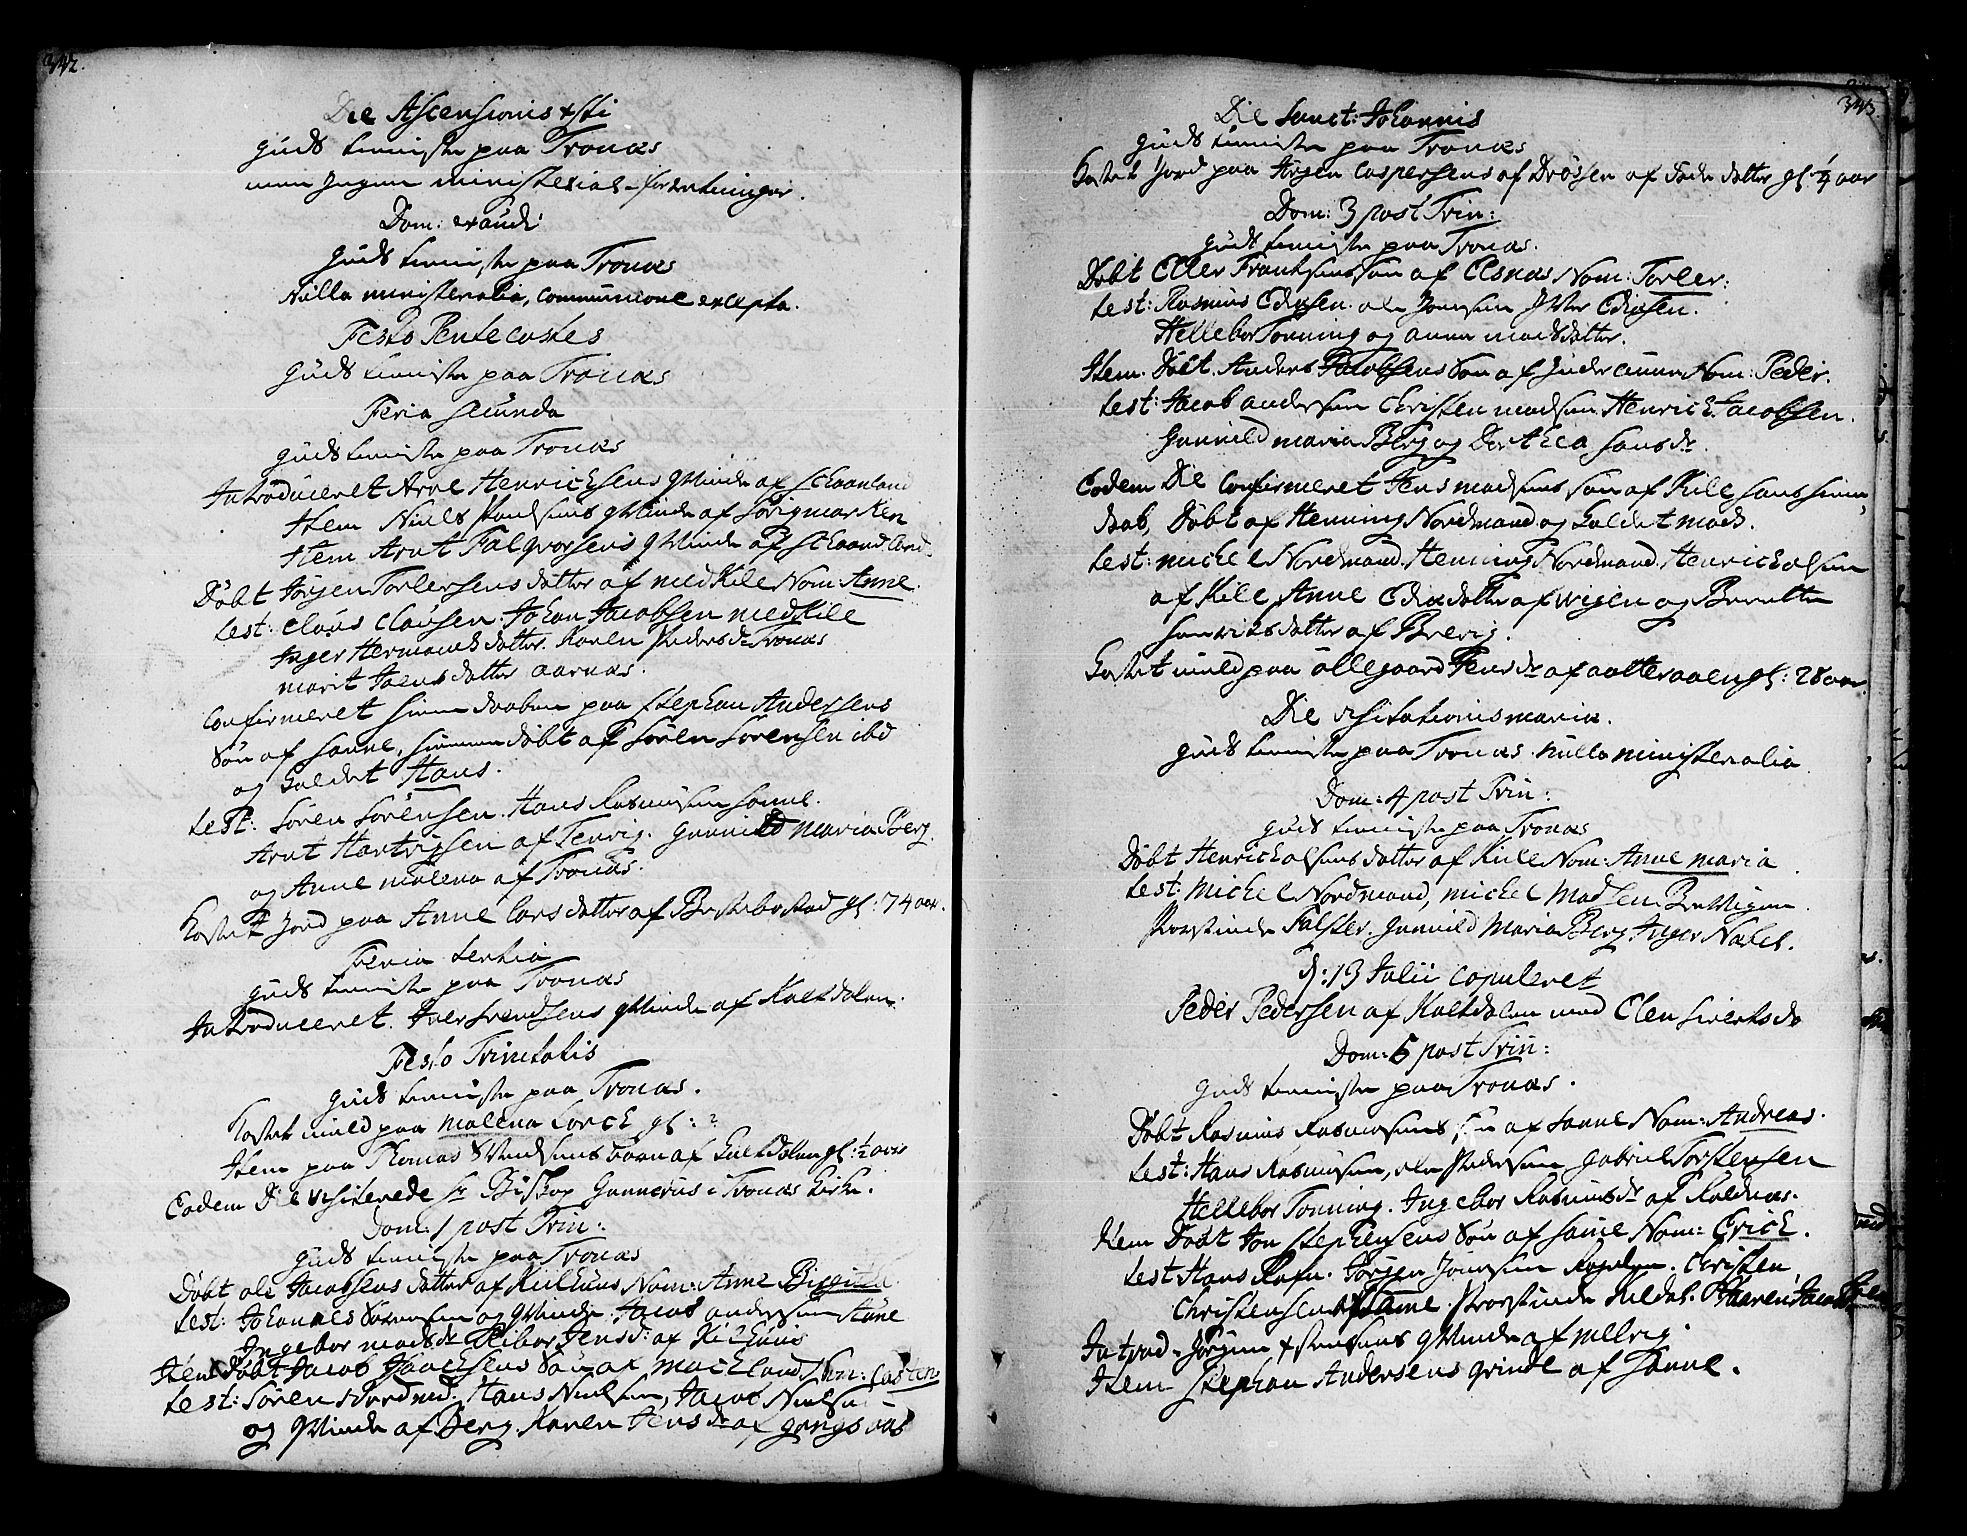 342.
Die Ascensionis xsti
Guds tieniste paa Tronæs
men Ingen ministerial-forretninger.
Dom: exaudi
Guds tieniste paa Tronæs
Nulla ministerialia, communione excepta.
Festo Pentecostes
Guds tieniste paa Tronæs
Feria secunda
Guds tieniste paa Tronæs
Introduceret Arne Henrichsens qvinde af schaanland
Item Niels Poulsens qvinde af Sørigmarken
Item Arnt Falqvorsens qvinde af schaanland
Døbt Jørgen Torlersens datter af medkile Nom: Anne.
test: Claus Clausen. Johan Jacobsen medkile
Inger Hermansdatter. Karen Pedersdr Tronæs
marit Joensdatter aarnæs.
Confirmeret hiemedaaben paa Stephan Andersens
Søn af sanne, hiemmedøbt af Søren Sørensen ibd
og kaldet Hans.
test: Søren Sørensen. Hans Rasmusen sanne.
Arnt Hartvigsen af Tenvig. Gunnild maria Berg.
og Anne malena af Tronæs.
Kastet Jord paa Anne Larsdatter af Bestebostad gl: 74 aar.
Feria tertia
Guds tieniste paa Tronæs
Introduceret. Iver Svendsens qvinde af Kaltdalen.
Festo Trinitatis
Guds tieniste paa Tronæs.
Kastet muld paa malena Lorck gl: ?
Item paa Thomas Svendsens barn af Kaltdalen gl: ½ aar
Eodem Die visiterede Hr Biskop Gunnerus i Tronæs kirke.
Dom: 1 post Trin:
Guds tieniste paa Tronæs
Døbt ole Jacobsens datter af Kilhuus Nom: Anne Birgitta.
test: Johannes Sørensen og qvinde. Jacob andersen
Ingebor madsdr Jensdr af Kilhuus
Item Døbt Jacob Isachsens Søn af mochland Nom: Casten
test: Søren Nordmd. Hans Nielsen, Jacob Nielsen
og qvinde af Berg. Karen Jensdr af gangsaas
343.
Die Sanct: Johannis
Guds tieniste paa Tronæs
Kastet Jord paa Jørgen Caspersens af Drøssen af Døde datter gl: ¼ aar
Dom: 3 post Trin:
Guds tieniste paa Tronæs.
Døbt Eller Frantsens søn af Elsnæs Nom: Torler:
test: Rasmus Edisen. ole Jonsen Iver Edisen.
Hellebor Tønning og anna madsdatter.
Item. Døbt. Anders Jacobsens Søn af Nom: Peder.
test: Jacob andersen Christen madsen. Henrich Jacobsen.
Gunnild maria Berg og Dorthea Hansdr
Eodem Die Confirmeret Jens madsens søn af Kile hans hiemme
daab, Døbt af Henning Nordmand og kaldet mads.
test: michel Nordmand. Henning Nordmand. Henrich olsen
af Kile Anne datter af vigen og Berethe
datter af Brevig.
Kastet muld paa ollegaard Jensdr af aatteraaen gl: 28 aar.
Die visitationis mariæ.
Guds tieniste paa Tronæs. nulla ministerialia
Dom: 4 post Trin:
Guds tieniste paa Tronæs
Døbt Henrich olsens datter af Kile Nom: Anne maria.
test: michel Nordmand, michel Madsen
Prostinde Falster. Gunnild Maria Berg. Inger Nabel.
d: 13 Julii copuleret
Peder Pedersen af Kaltdalen med Elen Sivertsdr
Dom: 5 post Trin:
Guds tieniste paa Tronæs.
Døbt Rasmus Rasmusens søn af sanne Nom: Andreas.
test: Hans Rasmusen, ole Pedersen Gabriel Torstensen
Hellebor Tønning. Ingebor Rasmusdr af Roldnæs.
Item Døbt Jon Stephensens Søn af sanne Nom: Erich.
test Hans Rafn. Jørgen Jonsen. Christen
Christensen af sanne. Prostinde Heldal. Maren
Introd - Jørgen xstensens qvinde af melvig.
Item Stephan Andersens qvinde af Sanne.